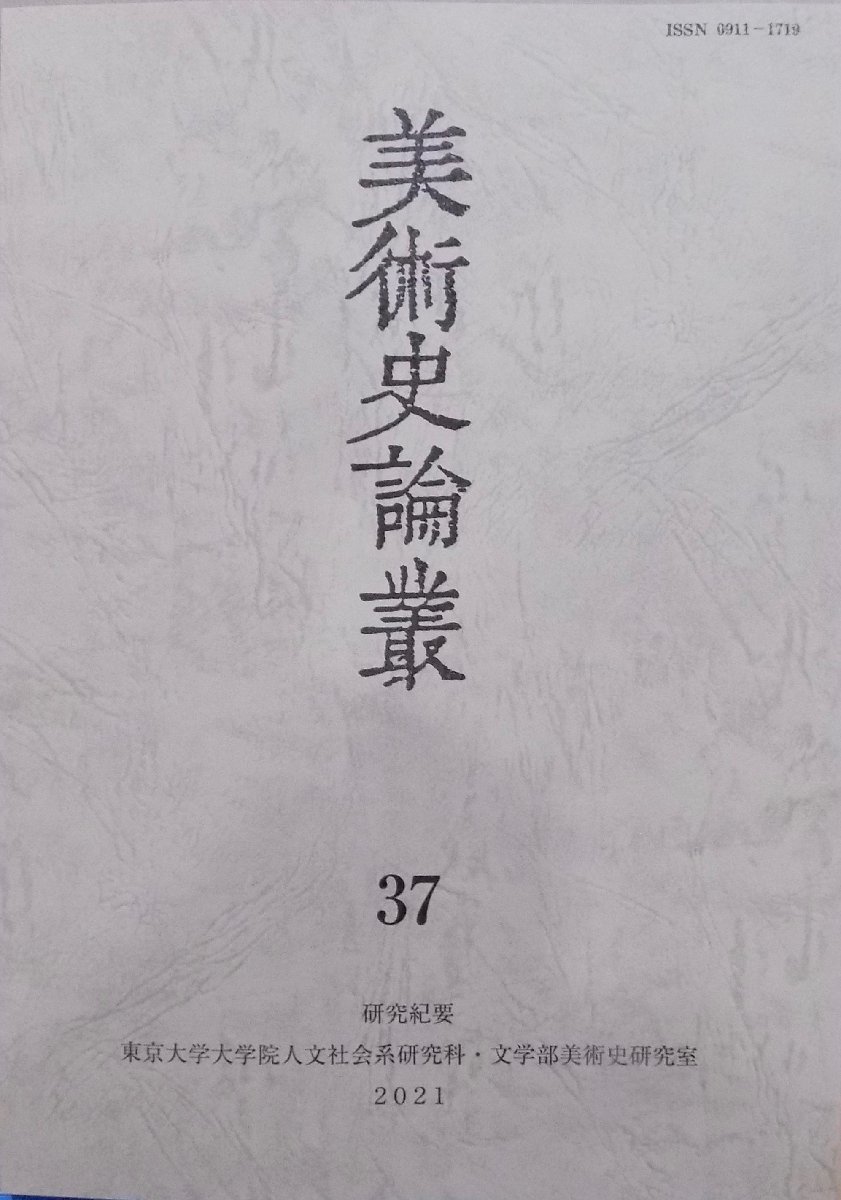 ISSN 0911-1719
美術史論叢
37
研究紀要
東京大学大学院人文社会系研究科・文学部美術史研究室
2021